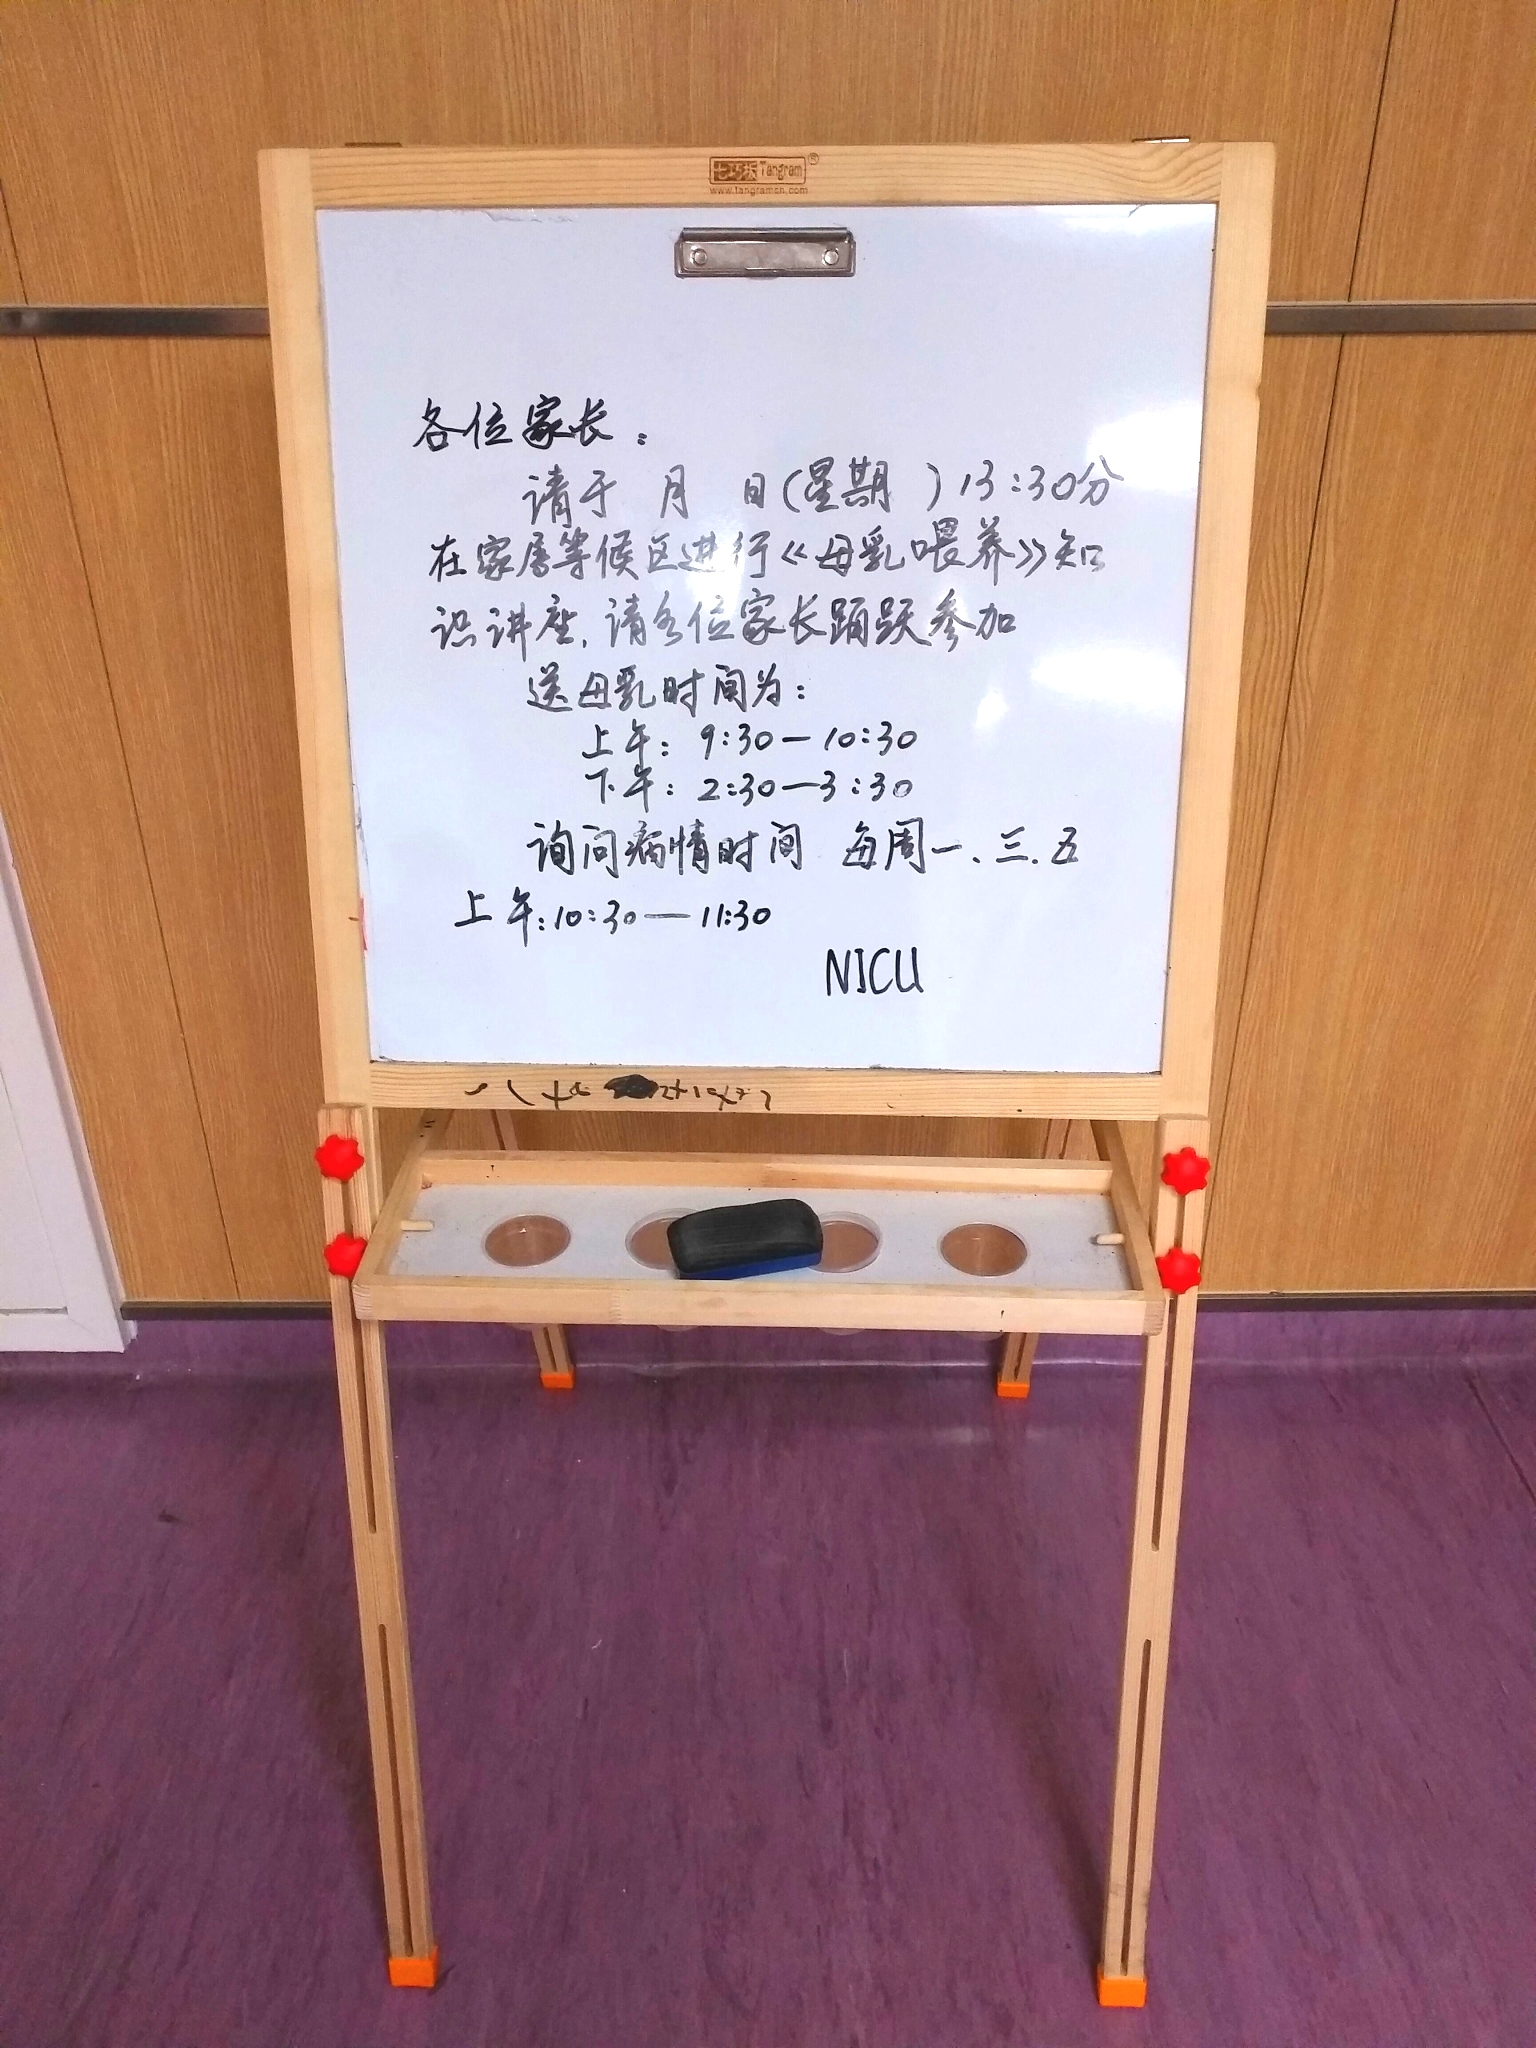 七巧板 Tangram®
www.tangramcn.com
各位家长：
请于 月 日(星期 )13:30分
在家属等候区进行《母乳喂养》知
识讲座,请各位家长踊跃参加
送母乳时间为：
上午：9:30—10:30
下午：2:30—3:30
询问病情时间 每周一、三、五
上午:10:30—11:30
NICU